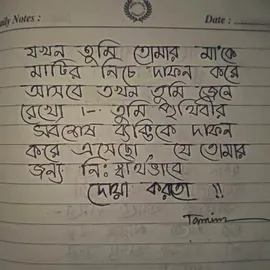 aily Notes :
Date :
যখন তুমি তোমার মা'কে
মাটির নিচে দাফন করে
আসবে তখন তুমি জেনে
রেখো ।- তুমি পৃথিবীর
সর্বশেষ ব্যক্তিকে দাফন
করে এসেছো , যে তোমার
জন্য নিঃস্বার্থভাবে
দোয়া করতো !!
Tamim